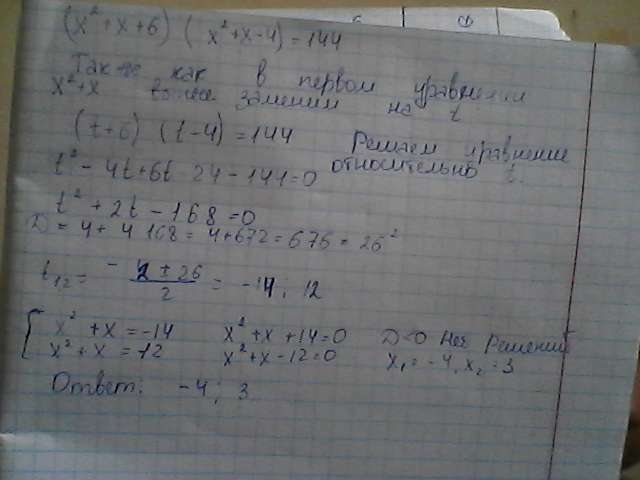 (x² + x + 6) (x² + x - 4) = 144
Так же как в первом уравнении
x² + x заменим на t
(t + 6) (t - 4) = 144 Решаем уравнение
относительно t.
t² - 4t + 6t 24 - 144 = 0
t² + 2t - 168 = 0
D = 4 + 4 168 = 4 + 672 = 676 = 26²
t₁₂ = (-2 ± 26)/2 = -14; 12
x² + x = -14 x² + x + 14 = 0 D<0 Нет Решений
x² + x = 12 x² + x - 12 = 0 x₁ = -4, x₂ = 3
Ответ: -4; 3